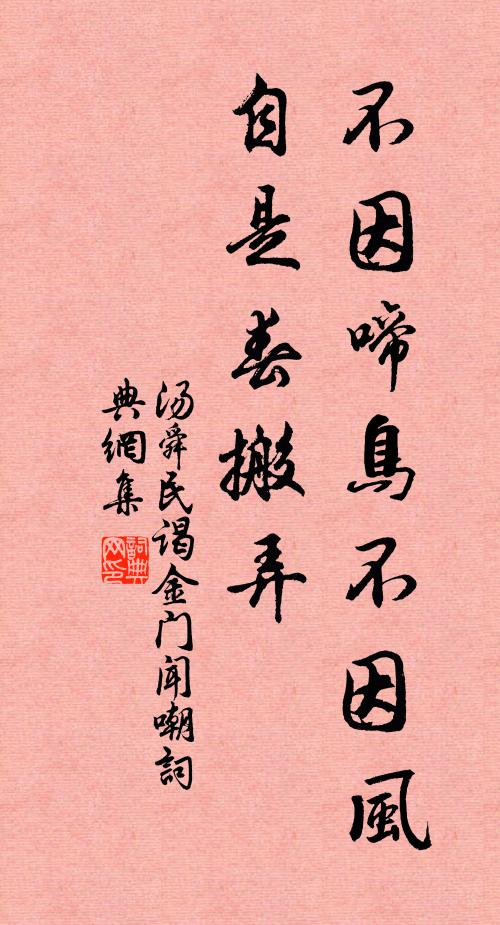 不因啼鳥不因風
自是春搬弄
汤舜民谒金门闻嘲詞
典網集
詞典網印